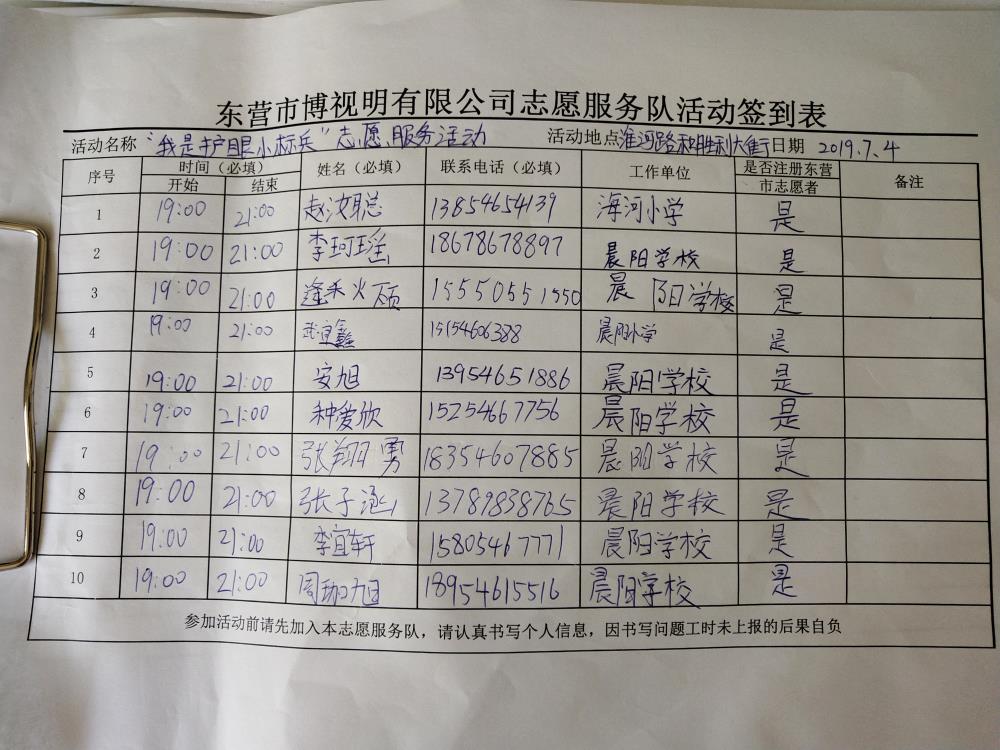 东营市博视明有限公司志愿服务队活动签到表
活动名称 “我是护眼小标兵”志愿服务活动 活动地点 淮河路和胜利大街 日期 2019.7.4
序号 时间（必填） 姓名（必填） 联系电话（必填） 工作单位 是否注册东营市志愿者 备注
开始 结束
1 19:00 21:00 赵汝聪 13854654139 海河小学 是
2 19:00 21:00 李珂瑶 18678678897 晨阳学校 是
3 19:00 21:00 逄禾硕 15550551550 晨阳学校 是
4 19:00 21:00 武宜鑫 15154606388 晨阳小学 是
5 19:00 21:00 安旭 13954651886 晨阳学校 是
6 19:00 21:00 种爱欣 15254667756 晨阳学校 是
7 19:00 21:00 张翔勇 18354607885 晨阳学校 是
8 19:00 21:00 张子涵 13789838765 晨阳学校 是
9 19:00 21:00 李宜轩 15805467771 晨阳学校 是
10 19:00 21:00 周珈旭 18954615516 晨阳学校 是
参加活动前请先加入本志愿服务队，请认真书写个人信息，因书写问题工时未上报的后果自负